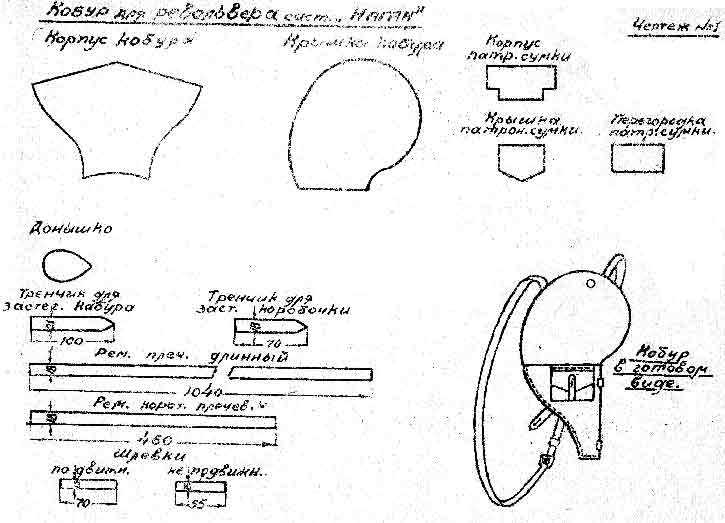 Кобур для револьвера сист. „Наган"
Чертеж №1
Корпус кобура
Крышка кобура
Корпус
патр. сумки
Крышка
патрон. сумки.
Перегородка
патр. сумки.
Донышко
Тренчик для
застег. кобура
100
Тренчик для
заст. коробочки
70
Рем. плеч. длинный
1040
Рем. корот. плечев.
460
Шлевки
подвижн.
70
неподвижн.
55
Кобур
в готовом
виде.